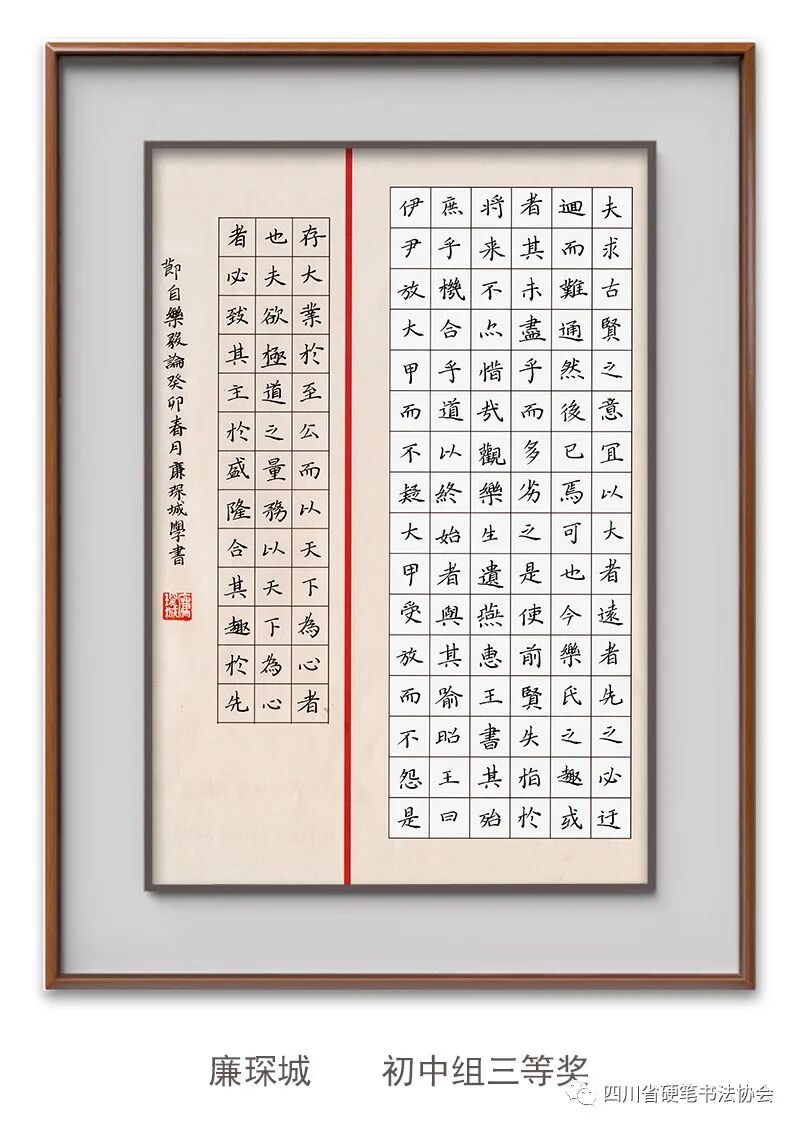 夫求古賢之意宜以大者遠者先之必迂
迴而難通然後已焉可也今樂氏之趣或
者其未盡乎而多劣之是使前賢失指於
將来不亦惜哉觀樂生遺燕惠王書其殆
庶乎機合乎道以終始者與其喻昭王曰
伊尹放大甲而不疑大甲受放而不怨是
存大業於至公而以天下為心者
也夫欲極道之量務以天下為心
者必致其主於盛隆合其趣於先
節自樂毅論癸卯春月廉琛城學書
廉琛城
廉琛城 初中组三等奖
四川省硬笔书法协会